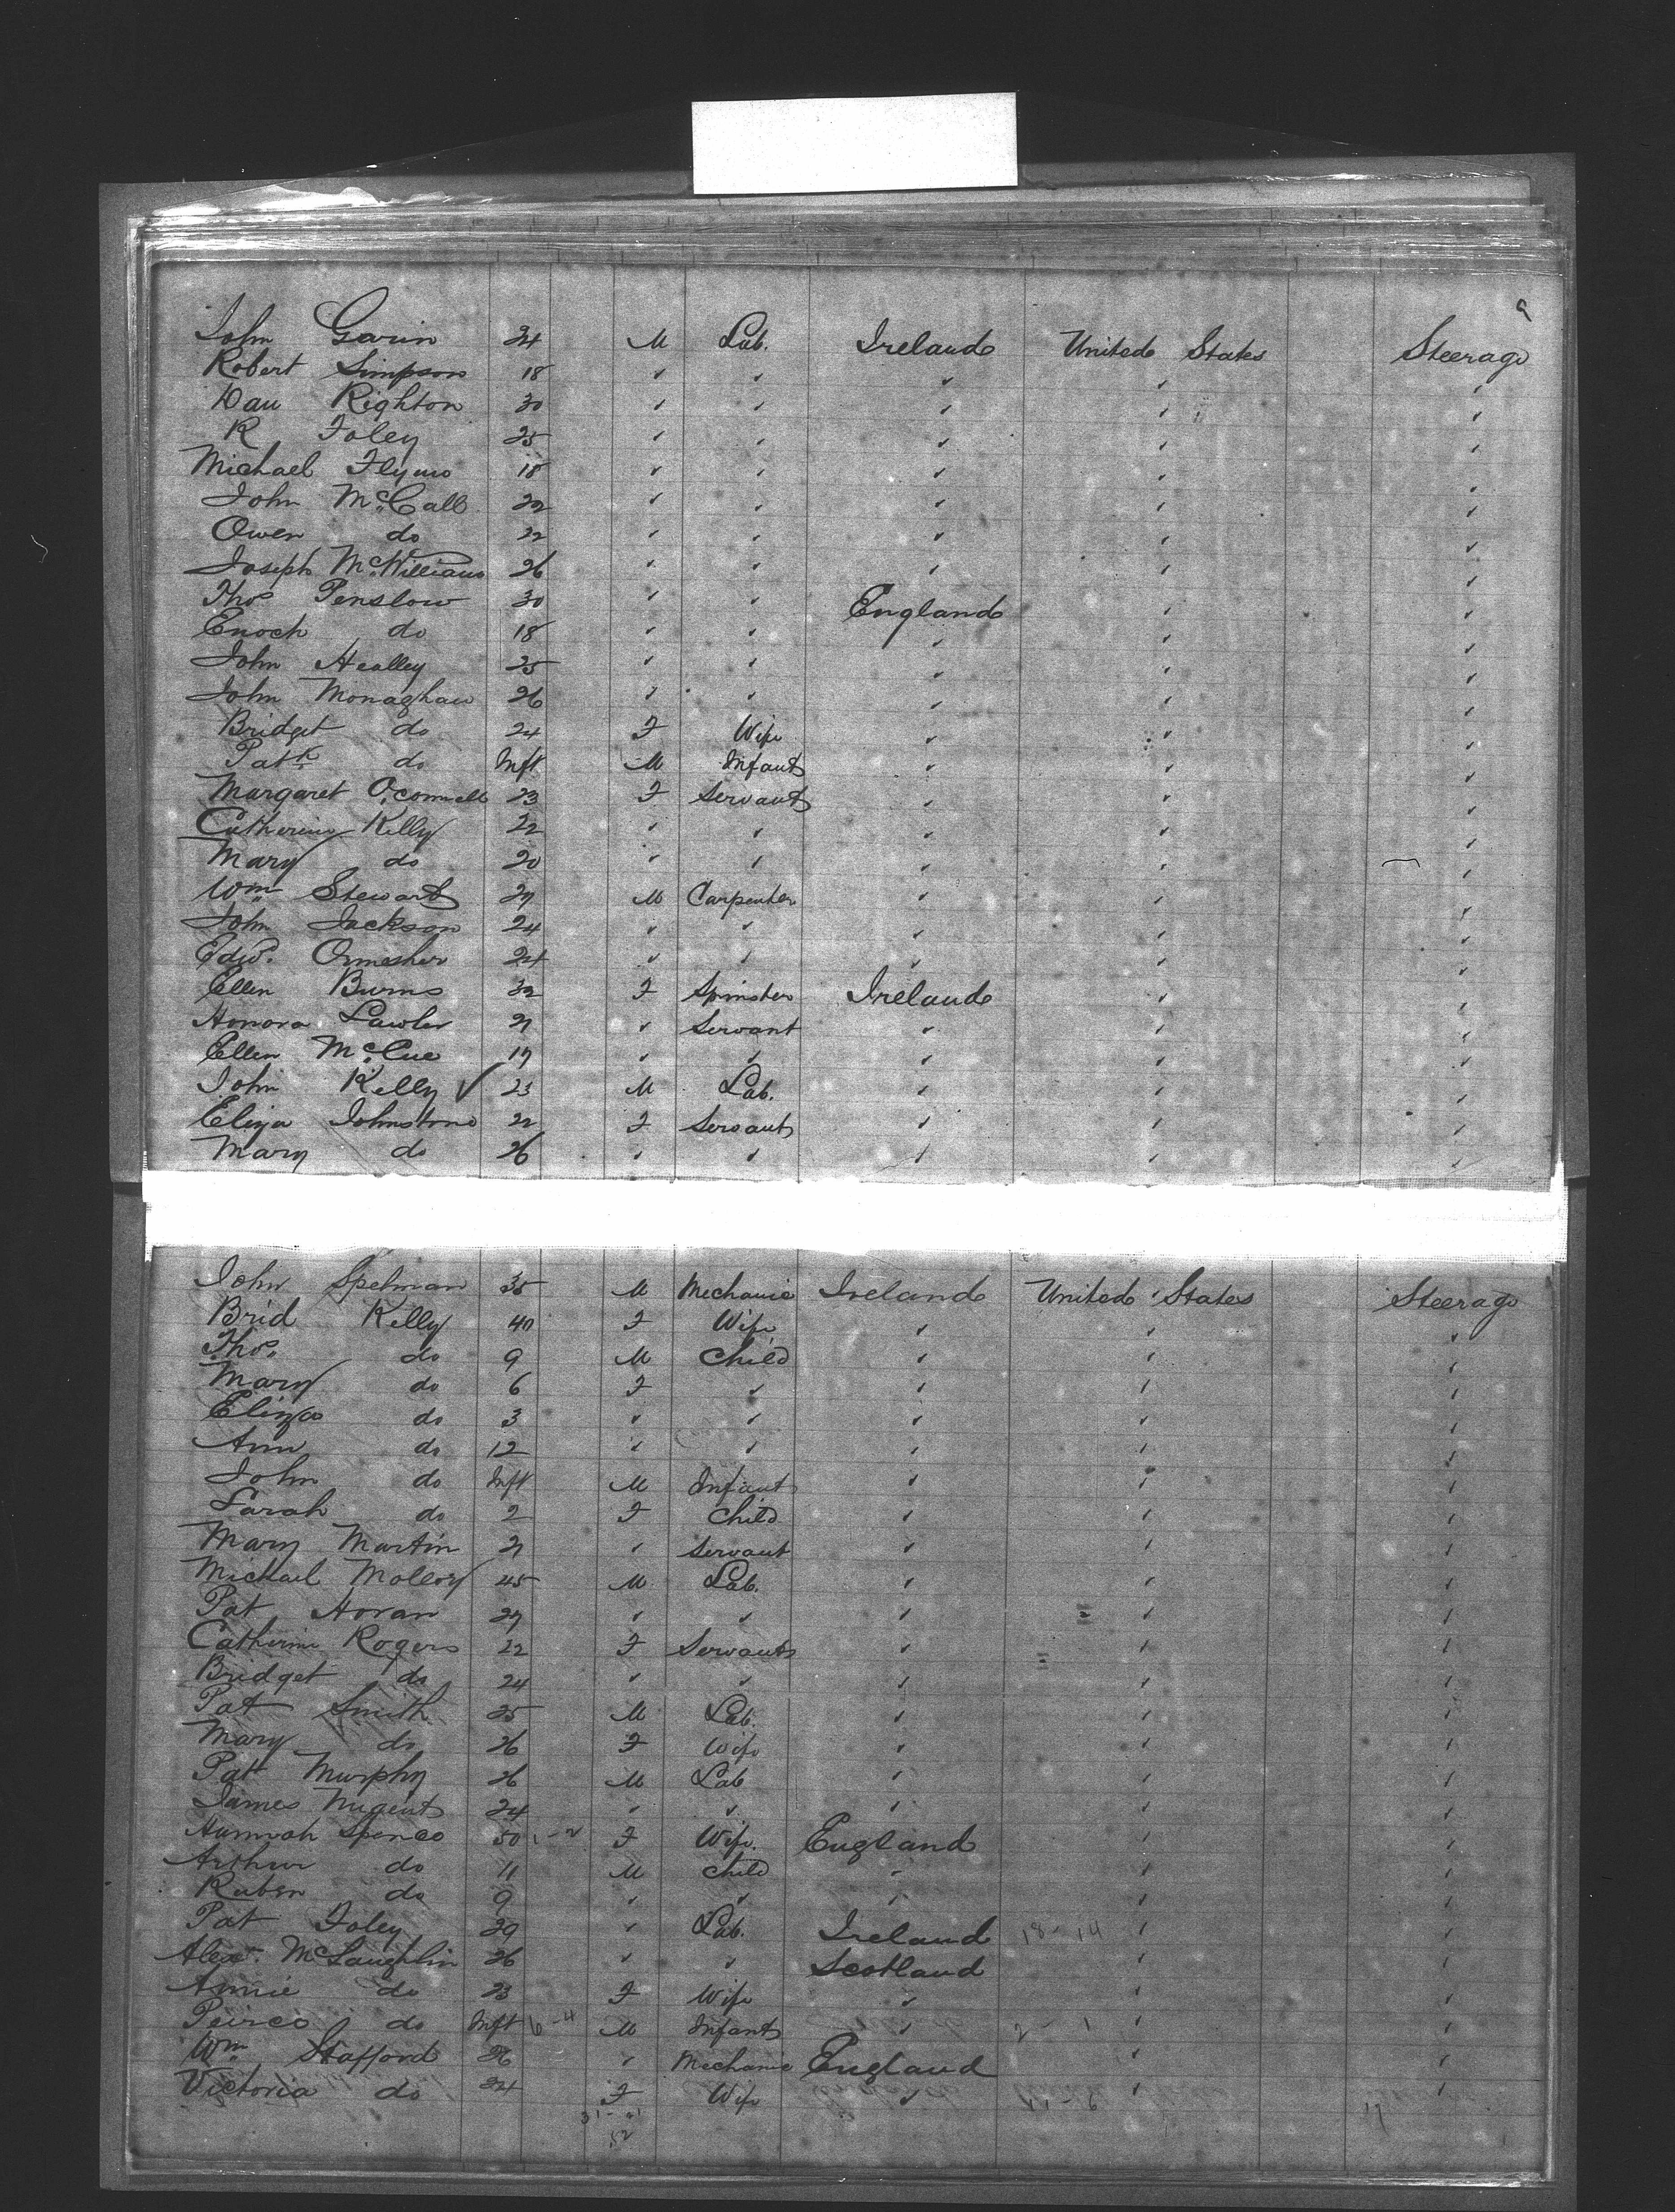 9
John Gavin 24 M Lab. Ireland United States Steerage
Robert Simpson 18 " " " " "
Dan Righton 30 " " " " "
R Foley 25 " " " " "
Michael Flynn 18 " " " " "
John McCall 22 " " " " "
Owen do 22 " " " " "
Joseph McWilliams 26 " " " " "
Thos Penslow 30 " " England " "
Enoch do 18 " " " " "
John Healley 25 " " " " "
John Monaghan 26 " " " " "
Bridget do 24 F Wife " " "
Patk do Inft M Infant " " "
Margaret O'connell 23 F Servant " " "
Catherine Kelly 22 " " " " "
Mary do 20 " " " " "
Wm Stewart 27 M Carpenter " " "
John Jackson 24 " " " " "
Edwd. Ormesher 24 " " " " "
Ellen Burns 32 F Spinster Ireland " "
Honora Lawler 21 " Servant " " "
Ellen McCue 17 " " " " "
John Kelly ✓ 23 M Lab. " " "
Eliza Johnstone 22 F Servant " " "
Mary do 26 " " " " "
John Spelman 35 M Mechanic Ireland United States Steerage
Brid Kelly 40 F Wife " " "
Thos. do 9 M Child " " "
Mary do 6 F " " " "
Eliza do 3 " " " " "
Ann do 12 " " " " "
John do Inft M Infant " " "
Sarah do 2 F Child " " "
Mary Martin 21 " Servant " " "
Michael Molloy 45 M Lab. " " "
Pat Horan 27 " " " " "
Catherine Rogers 22 F Servant " " "
Bridget do 24 " " " " "
Pat Smith 25 M Lab. " " "
Mary do 26 F Wife " " "
Pat Murphy 26 M Lab " " "
James Nugent 24 " " " " "
Hannah Spence 50 1-2 F Wife. England " "
Arthur do 11 M Child " " "
Ruben do 9 " " " " "
Pat Foley 29 " Lab. Ireland 18-14 " "
Alexr. McLaughlin 26 " " Scotland " "
Annie do 23 F Wife " " "
Peirce do Inft 6-4 M Infant " 2-1 " "
Wm Stafford 26 " Mechanic England " "
Victoria do 24 F Wife " 11-6 " "
31-21 17
52